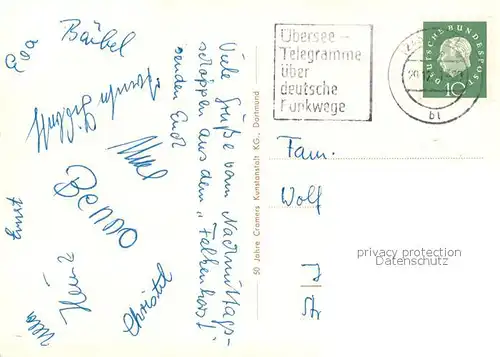 Bärbel
Benno
Horst
Heinz
Ulla
Christel
Viele Grüße vom Nachmittags-
schoppen aus dem „Falkenhorst“
senden Euch
50 Jahre Cramers Kunstanstalt KG., Dortmund
Übersee –
Telegramme
über
deutsche
Funkwege
DEUTSCHE BUNDESPOST
10
bl
Fam.
Wolf
privacy protection
Datenschutz
Str